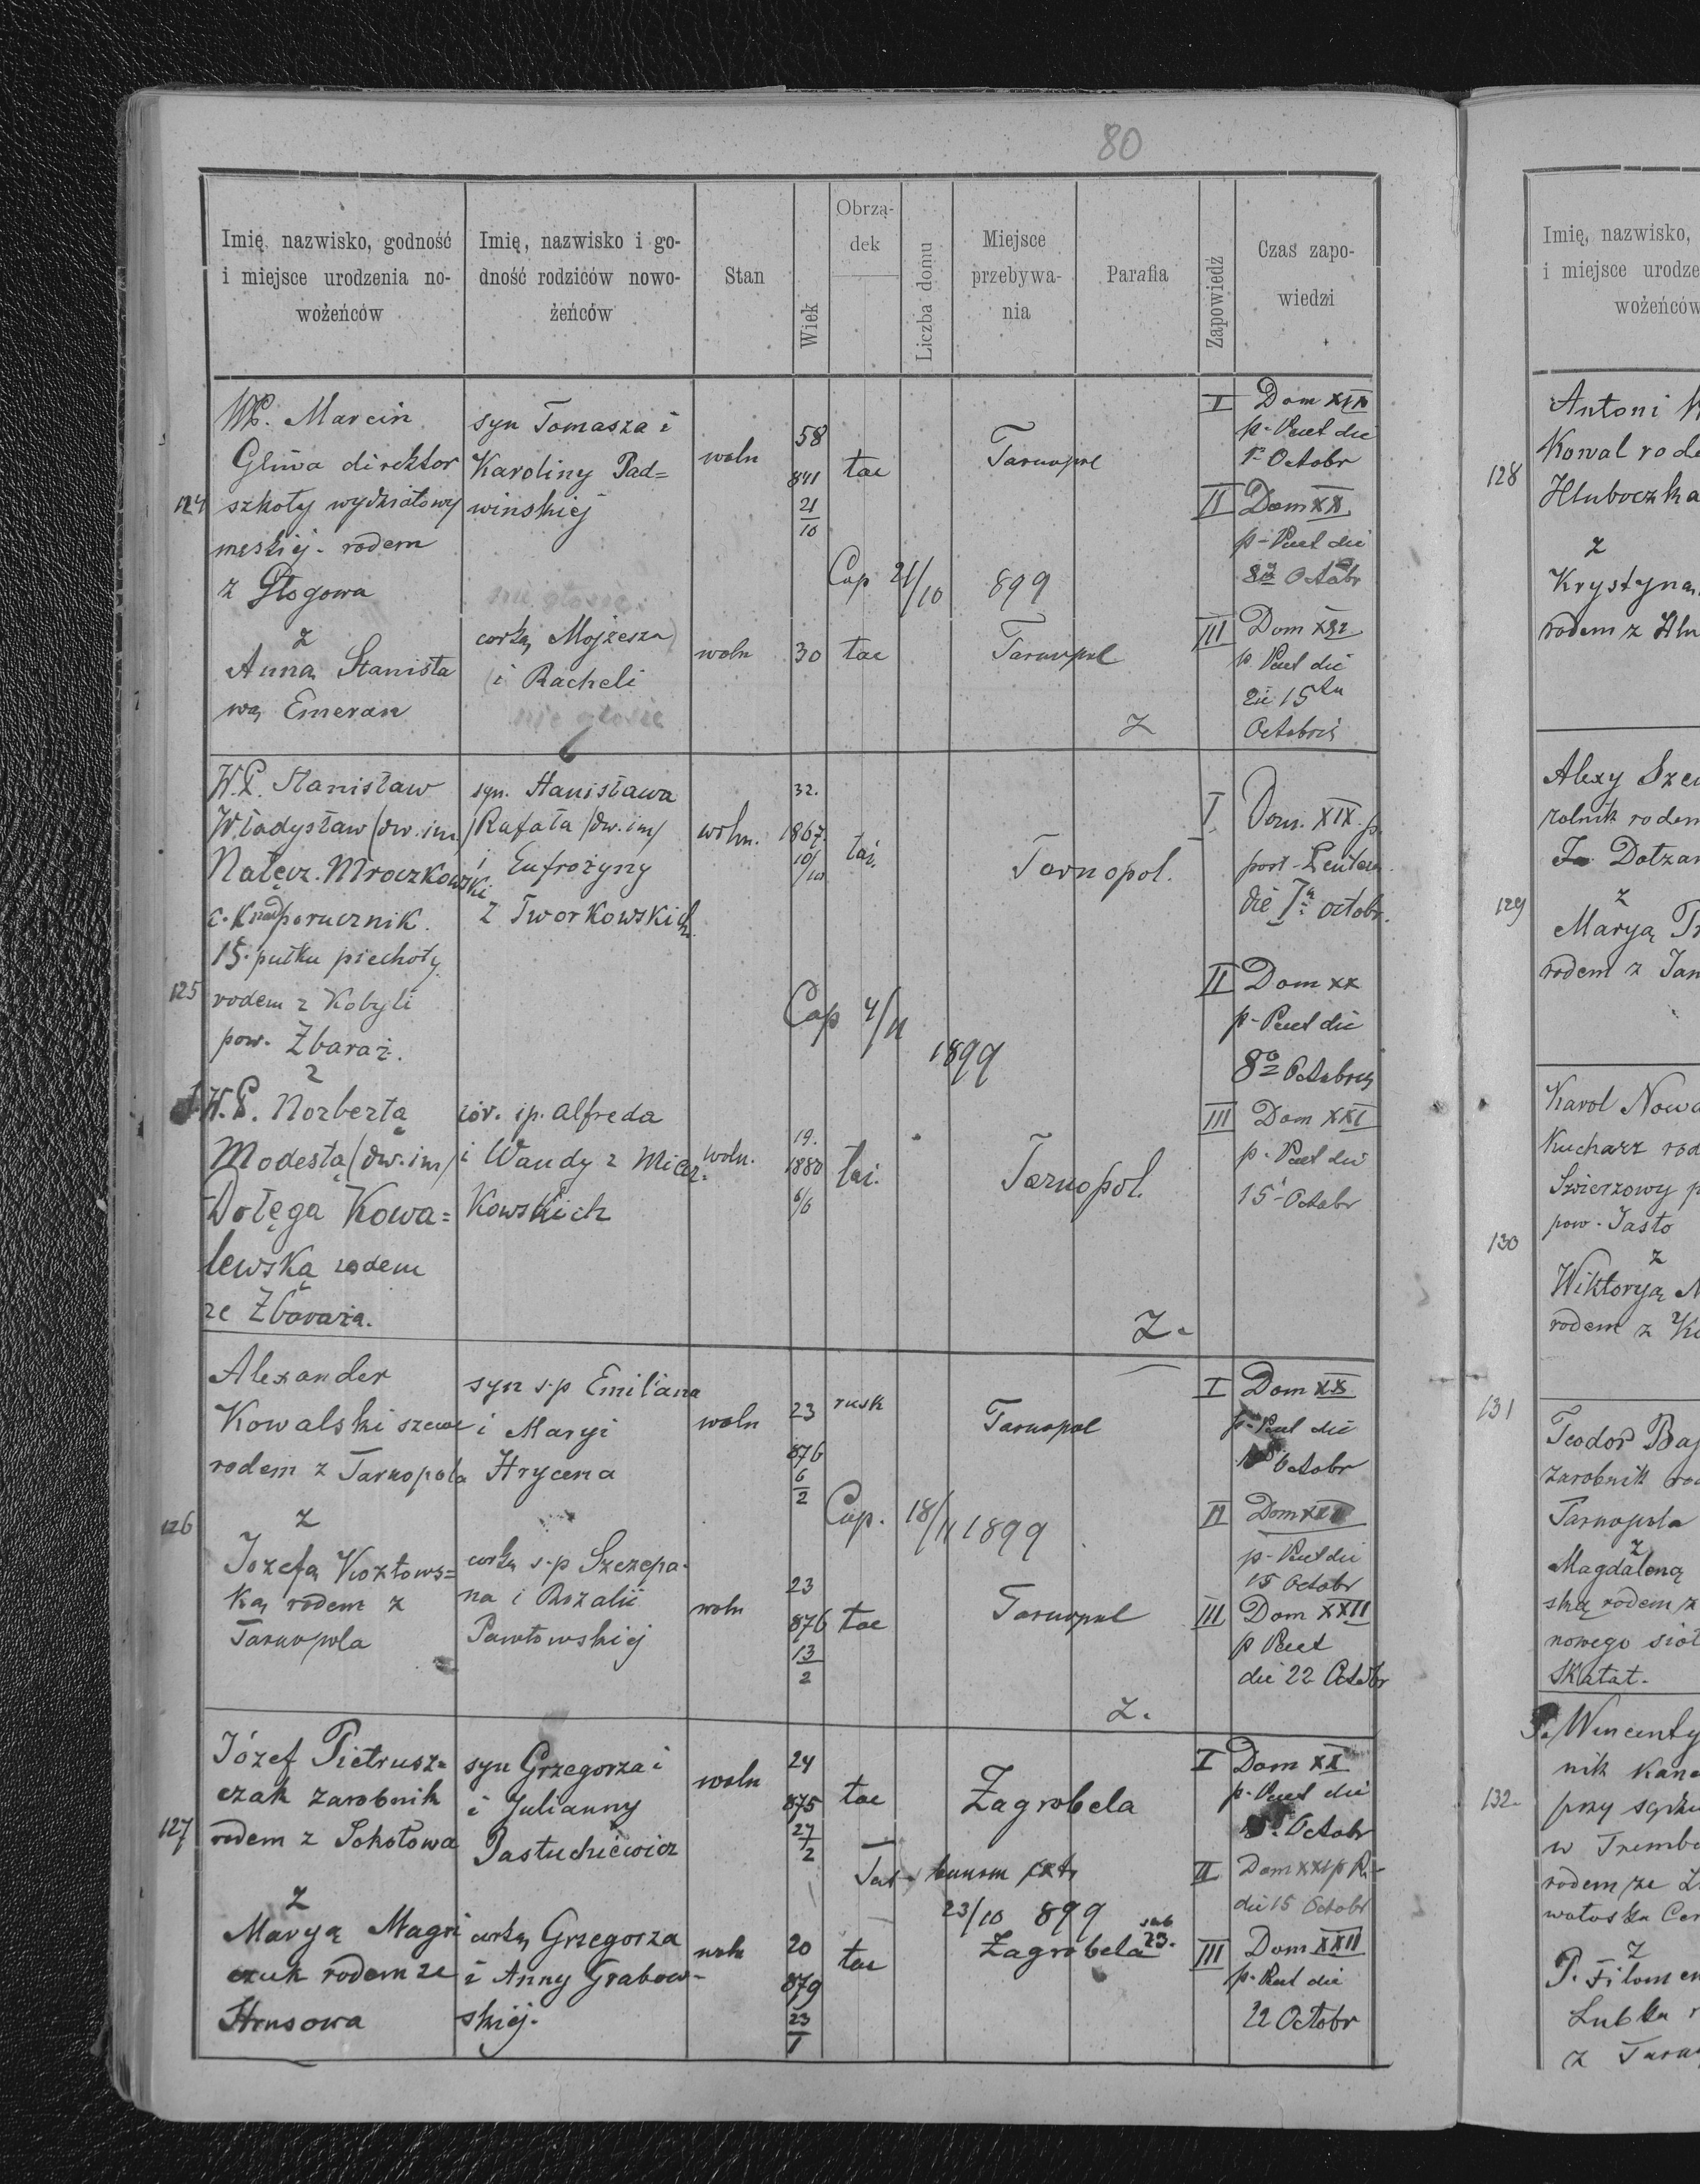 80
Imię, nazwisko, godność
i miejsce urodzenia no-
wożeńców
Imię, nazwisko i go-
dność rodziców nowo-
żeńców
Stan
Wiek
Obrzą-
dek
Liczba domu
Miejsce
przebywa-
nia
Parafia
Zapowiedź
Czas zapo-
wiedzi
124
WP. Marcin
Gliwa direktor
szkoły wydziałowy
męskiej - rodem
z Głogowa
z
Anną Stanisła
wą Emeran
syn Tomasza i
Karoliny Pad=
winskiej
nie głosić
corką Mojżesza
(i Racheli
nie głosić
woln
58
841
21
10
łac
Tarnopol
Cop 21/10 899
woln
30
łac
Tarnopol
Z
I Dom XIX
p-Pent die
1a Octobr
II Dom XX
p-Pent die
8a Octobr
III Dom XXI
p Pent die
15ta
Octobris
125
W.P. Stanisław
Władysław (dw. im.)
Nałęcz. Mroczkowski
c. k nadporucznik
15. pułku piechoty
rodem z Kobyli
pow. Zbaraż.
z
W.P. Norbertą
Modestą (dw. im)
Dołęga Kowa=
lewską rodem
ze Zbaraża.
syn. Stanisława
Rafała (dw. im)
i Eufrozyny
z Tworkowskich
cór. śp. Alfreda
i Wandy z Micz-
kowskich
woln.
32.
1867.
10/10
łać.
Tarnopol.
Cop 4/11
1899
woln.
19.
1880
6/6
łać.
Tarnopol.
Z.
I Dom. XIX p.
post-Pentec.
die 1a octobr.
II Dom XX
p-Pent die
8a Octobris
III Dom XXI
p-Pent die
15 Octobr
126
Alexander
Kowalski szewc
rodem z Tarnopola
z
Jozefą Kozłows=
ką rodem z
Tarnopola
syn ś.p Emiliana
i Maryi
Hrycena
corką ś.p Szczepa-
na i Rozalii
Pawłowskiej
woln
23
876
6
2
rusk
Tarnopol
Cop. 18/11 1899
woln
23
876
13
2
łac
Tarnopol
Z.
I Dom XX
p-Pent die
Octobr
II Dom XXI
p-Pent die
15 Octobr
III Dom XXII
p Pent
die 22 Octobr
127
Józef Pietrusz=
czak zarobnik
rodem z Sokołowa
z
Maryą Magri
czuk rodem ze
Hrusowa
syn Grzegorza i
i Julianny
Pastuchiewicz
corką Grzegorza
i Anny Grabow-
skiej.
woln
24
875
27
2
łac
Zagrobela
23/10 899
woln
20
879
23
1
łac
Zagrobela
sub
23.
I Dom XX
p-Pent die
Octobr
II Dom XXI p P-
die 15 Octobr
III Dom XXII
p-Pent die
22 Octobr
Imię, nazwisko,
i miejsce urodze
wożeńców
128
Antoni
Kowal rode
Hłuboczka
z
Krystyną
rodem z Hłu
129
Alexy Szew
rolnik rodem
z
Maryą
rodem z
130
Karol Nowa
Kucharz rod
Swierzowy p
pow. Jasło
z
Wiktoryą
rodem z
131
Teodor
zarobnik ro
Tarnopola
z
Magdaleną
ską rodem z
nowego sioł
Skałat.
132
P. Wincenty
nik Kanc
przy sądzie
w Trembo
rodem ze
z
P. Filomen
z Tarn